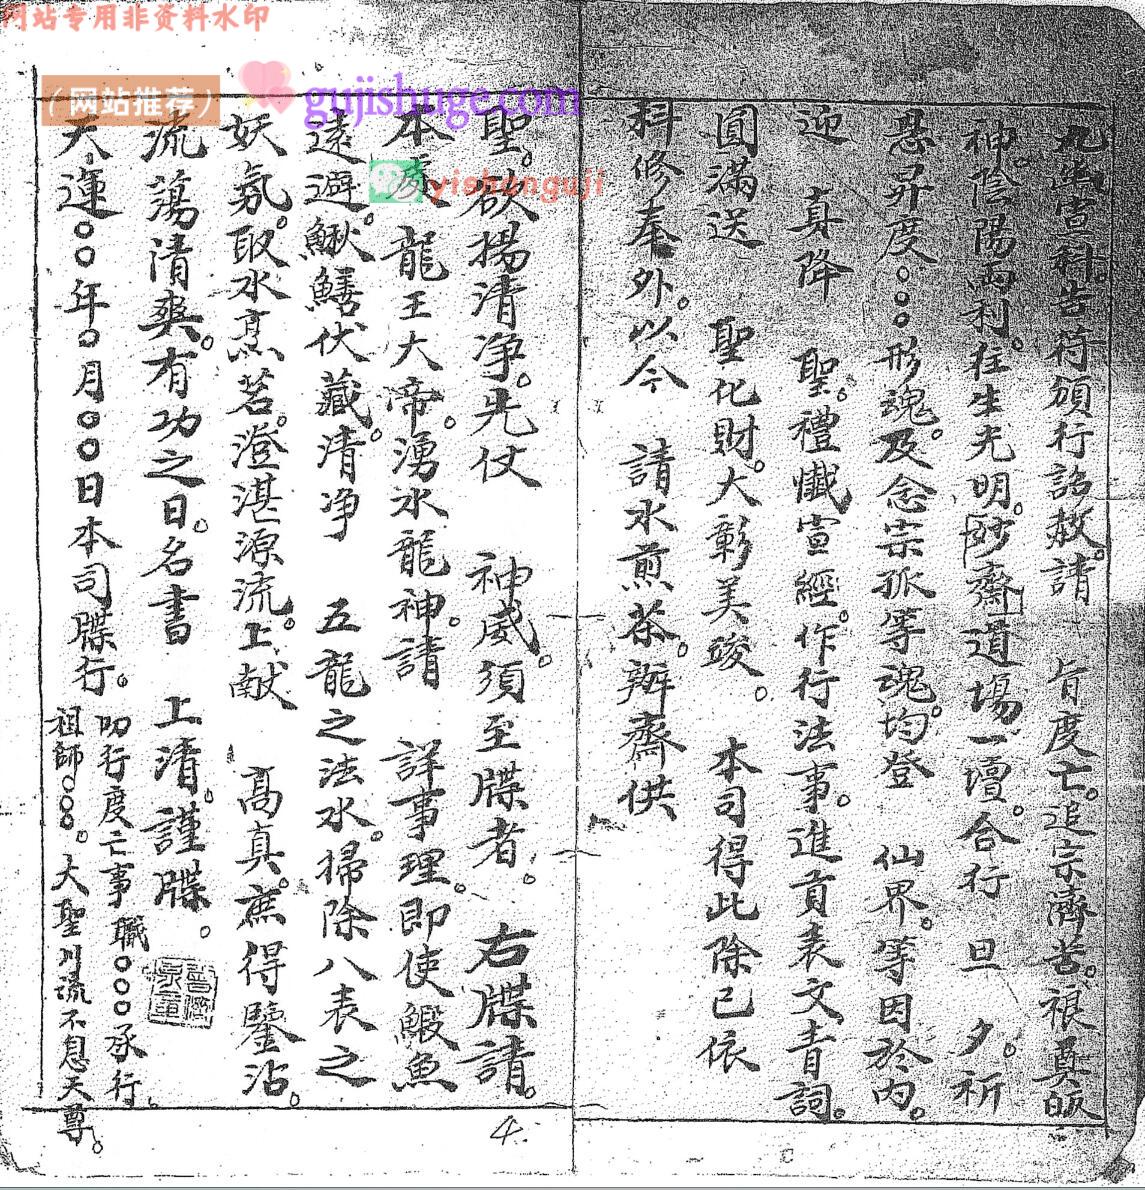 网站专用非资料水印
(网站推荐)
gujishuge.com
yishanguji
宣科。吉符頒行詔赦。請 旨度亡。追宗濟苦。
神。陰陽両利。往生光明。妙齋道場一壇。合行旦夕。祈
恩昇度。○○形魂。及念宗孤等魂。均登 仙界。等因於内。
迎 真降 聖。禮懺宣經。作行法事。進貢表文青詞。
圓滿送 聖化財。大彰美竣。 本司得此除已依
科修奉外。以今 請水煎茶。辦齋供
聖。欲揚清净。先仗 神威。須至牒者。 右牒請。
本 龍王大帝。湧水龍神。請 詳事理。即使鰕魚
遠避。鰍鱔伏藏。清净 五龍之法水。掃除八表之
妖氛。取水烹茗。澄湛源流。上献 高真。庶得鑒沾。
流蕩清爽。有功之日。名書 上清。謹牒。
天運○○年○月○○日本司牒行。
叩行度亡事 職○○○承行。
祖師○○。大聖川流不息天尊。
4